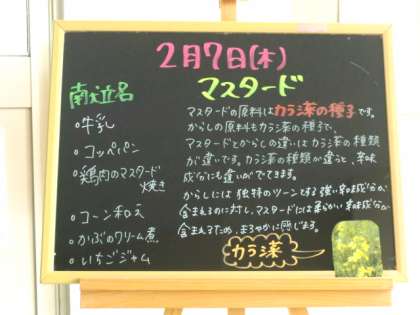 2月7日(木)
マスタード
献立名
。牛乳
。コッペパン
。鶏肉のマスタード
焼き
。コーン和え
。かぶのクリーム煮
。いちごジャム
マスタードの原料はカラシ菜の種子です。
からしの原料もカラシ菜の種子で、
マスタードとからしの違いはカラシ菜の種類
が違いです。カラシ菜の種類が違うと、辛味
成分にも違いができます。
からしには独特のツーンとする強い辛味成分が
含まれるのに対し、マスタードには柔らかい辛味成分が
含まれるため、まろやかに感じます。
カラシ菜